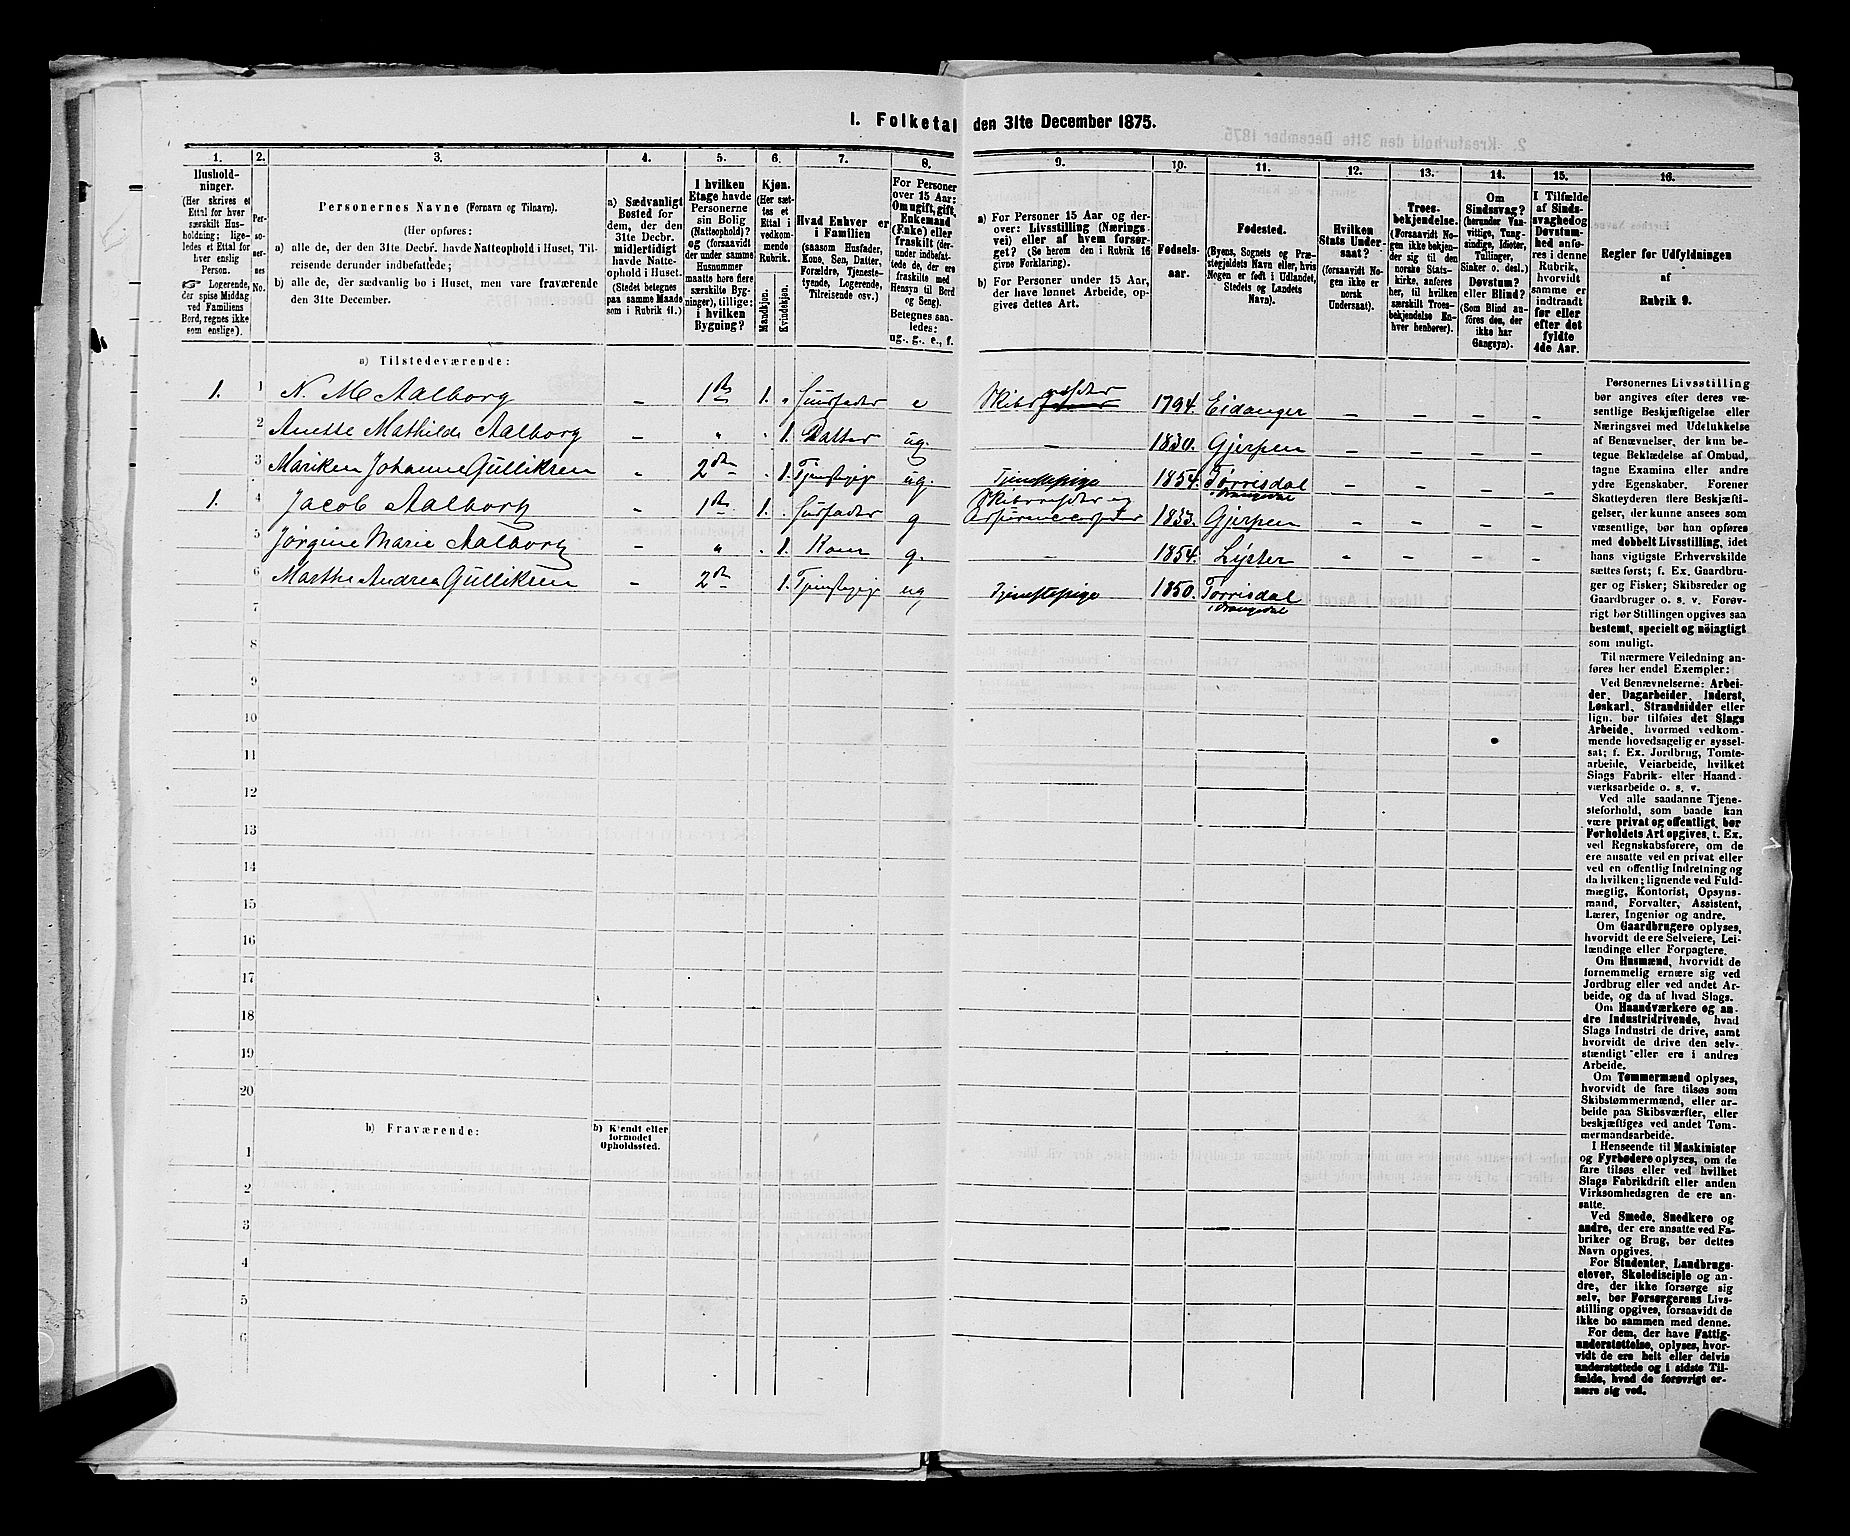 1. Folketal den 31te December 1875.
1.
2.
3.
4.
5.
6.
7.
8.
9.
10.
11.
12.
13.
14.
15.
16.
Husholdninger.
(Her skrives et
Ettal for hver
særskilt Husholdning;
ligeledes et Ettal for
hver enslig
Person.
Logerende,
der spise Middag
ved Familiens
Bord, regnes ikke
som enslige).
Personernes No.
Personernes Navne (Fornavn og Tilnavn).
(Her opføres:
a) alle de, der den 31te Decbr. havde Natteophold i Huset, Tilreisende derunder indbefattede;
b) alle de, der sædvanlig bo i Huset, men vare fraværende
den 31te December.
a) Sædvanligt
Bosted for
dem, der den
31te Decbr.
midlertidigt
havde Natteophold i Huset.
(Stedet betegnes
paa samme Maade
som i Rubrik 11.)
I hvilken
Etage havde
Personerne
sin Bolig
(Natteophold)?
og (forsaavidt
der under samme
Husnummer
maatte høre flere
særskilte Bygninger), tillige:
i hvilken
Bygning?
Kjøn.
(Her sættes et
Ettal i
vedkommende
Rubrik.
Mandkjøn.
Kvindekjøn.
Hvad Enhver er
i Familien
(saasom Husfader,
Kone, Søn, Datter,
Forældre, Tjenestetyende, Logerende,
Tilreisende osv.)
For Personer
over 15 Aar:
Om ugift, gift,
Enkemand
(Enke) eller
fraskilt (derunder indbefattede de, der ere
fraskilte med
Hensyn til Bord
og Seng).
Betegnes saaledes:
ug., g., e., f.
a) For Personer 15 Aar og derover: Livsstilling (Næringsvei) eller af hvem forsørget? (Se herom den i Rubrik 16
givne Forklaring).
b) For Personer under 15 Aar,
der have lønnet Arbeide, opgives dettes Art.
Fødselsaar.
Fødested.
(Byens, Sognets og Præstegjeldets Navn eller, hvis
Nogen er født i Udlandet,
Stedets og Landets
Navn).
Hvilken
Stats Undersaat?
(forsaavidt Nogen ikke er
norsk
Undersaat).
Troesbekjendelse.
(Forsaavidt Nogen ikke bekjender sig til den
norske Statskirke, anføres
her, til hvilken
særskilt Troesbekjendelse Enhver henhører).
Om
Sindssvag?
(herunder Vanvittige, Tungsindige, Idioter,
Tullinger,
Sinker o. desl.)
Døvstum?
eller Blind?
(Som Blind anføres den, der
ikke har
Gangsyn).
I Tilfælde
af Sindssvaghed og
Døvstumhed anføres i denne
Rubrik,
hvorvidt
samme er
indtraadt
før eller
efter det
fyldte
4de Aar.
Regler for Udfyldningen
af
Rubrik 9.
a) Tilstedeværende:
1. 1 N. M Aalborg 1ste 1. " Huusfader e Skibsreder 1794. Eidanger – – – –
2 Anette Mathilde Aalborg – " " 1. Datter ug. – 1830. Gjerpen – – – –
3 Mariken Johanne Gulliksen – 2den " 1. Tjenstepige ug. Tjenstepige 1854. Tørrisdal i Drangedal – – – –
1. 4 Jacob Aalborg – 1ste 1. Husfader g Skibsreder og 1833. Gjerpen – – – –
5 Jørgine Marie Aalborg – " " 1. Kone g. – 1854. Lyster – – – –
6 Marthe Andrea Gulliksen – 2den 1. Tjenstepige ug Tjenstepige 1850. Tørrisdal i Drangedal
7
8
9
10
11
12
13
14
15
16
17
18
19
20
b) Fraværende:
b) Kjendt eller
formodet
Opholdssted.
1
2
3
4
5
6
Personernes Livsstilling
bør angives efter deres væsentlige Beskjæftigelse eller
Næringsvei med Udelukkelse
af Benævnelser, der kun betegne Beklædelse af Ombud,
tagne Examina eller andre
ydre Egenskaber. Forener
Skatteyderen flere Beskjæftigelser, der kunne ansees som
væsentlige, bør han opføres
med dobbelt Livsstilling, idet
hans vigtigste Erhvervskilde
sættes først; f. Ex. Gaardbruger og Fisker; Skibsreder og
Gaardbruger o. s. v. Forøvrigt bør Stillingen opgives saa
bestemt, specielt og nøiagtigt
som muligt.
Til nærmere Veiledning anføres her endel Exempler:
Ved Benævnelserne: Arbeider, Dagarbeider, Inderst,
Løskarl, Strandsidder eller
lign. bør tilføies det Slags
Arbeide, hvormed vedkommende hovedsagelig er sysselsat; f. Ex. Jordbrug, Tomtearbeide, Veiarbeide, hvilket
Slags Fabrik- eller Haandværksarbeide o. s. v.
Ved alle saadanne Tjenesteforhold, som baade kan
være privat og offentligt, bør
Forholdets Art opgives, t. Ex.
ved Regnskabsførere, om de
ere ansatte ved en privat eller
ved en offentlig Indretning og
da hvilken; lignende ved Fuldmægtig, Kontorist, Opsynsmand, Forvalter, Assistent,
Lærer, Ingeniør og andre.
Om Gaardbrugere oplyses,
hvorvidt de ere Selveiere, Leilændinge eller Forpagtere.
Om Husmænd, hvorvidt de
fornemmelig ernære sig ved
Jordbrug eller ved andet Arbeide, og da af hvad Slags.
Om Haandværkere og andre Industridrivende, hvad
Slags Industri de drive, samt
hvorvidt de drive den selvstændigt eller ere i andres
Arbeide.
Om Tømmermænd oplyses,
hvorvidt de fare tilsøs som
Skibstømmermænd, eller arbeide paa Skibsværfter, eller
beskjæftiges ved andet Tømmermandsarbeide.
I Henseende til Maskinister
og Fyrbødere oplyses, om de
fare tilsøs eller ved hvilket
Slags Fabrikdrift eller anden
Virksomhedsgren de ere ansatte.
Ved Smede, Snedkere og
andre, der ere ansatte ved Fabriker og Brug, bør dettes
Navn opgives.
For Studenter, Landbrugselever, Skoledisciple og andre, der ikke forsørge sig
selv, bør Forsørgerens Livsstilling opgives, forsaavidt de
ikke bo sammen med denne.
For dem, der have Fattigunderstøttelse, oplyses, hvorvidt de ere helt eller delvis
understøttede og i sidste Tilfælde, hvad de forøvrigt ernære sig ved.